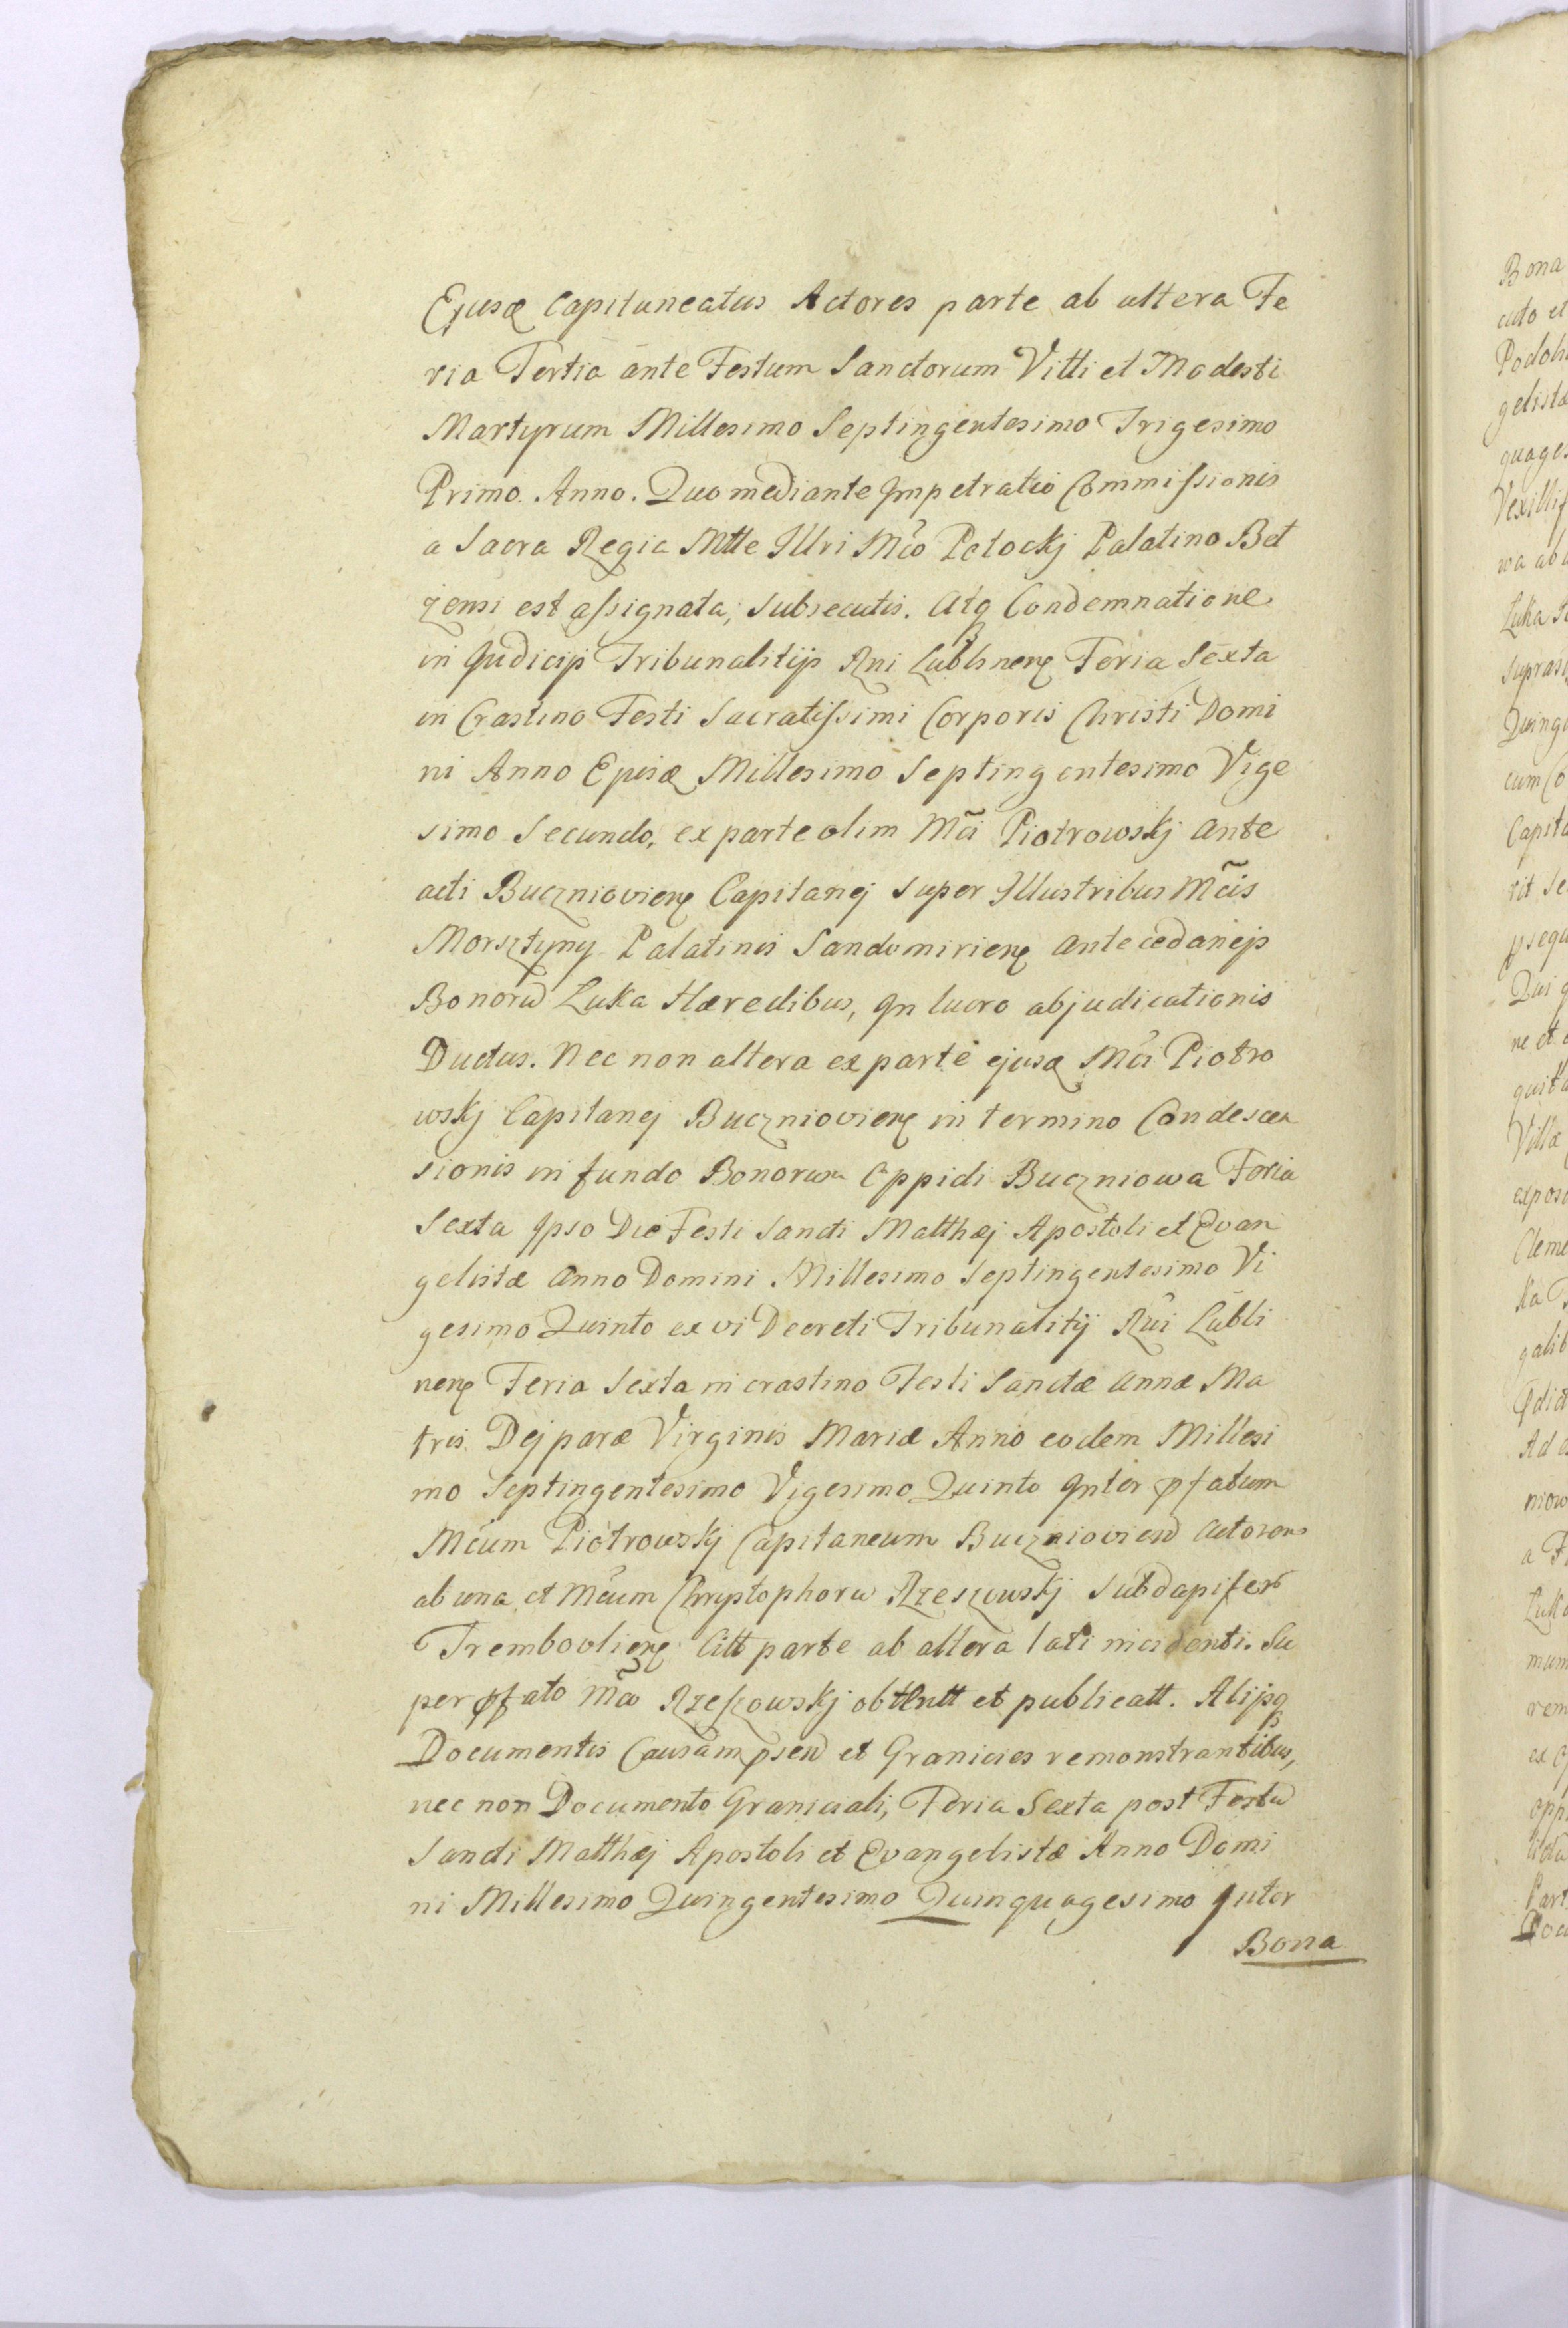 Ejusd Capitaneatus Actores parte ab altera Fe
ria Tertia ante Festum Sanctorum Vitti et Modesti
Martyrum Millesimo Septingentesimo Trigesimo
Primo. Anno. Quo mediante Impetratio Commissionis
a Sacra Regia Mtte Illri Mco Potockj Palatino Bel
zensi est assignata, subsecutis. Atq Condemnatione
in Judicijs Tribunalitijs Rni Lublinen Feria Sexta
in Crastino Festi Sacratissimi Corporis Christi Domi
ni Anno Ejusd Millesimo Septingentesimo Vige
simo Secundo, ex parte olim Mci Piotrowskj Ante
acti Buczniovien Capitanej super Illustribus Mcis
Morsztyny Palatinis Sandomirien Antecedanejs
Bonorū Luka Hæredibus, In lucro abjudicationis
Ductus. Nec non altera ex parte ejusd Mci Piotro
wskj Capitanej Buczniovien in termino Condescen
sionis in fundo Bonorum Oppidi Buczniowa Feria
Sexta Ipso Die Festi Sancti Matthæj Apostoli et Evan
gelistæ Anno Domini Millesimo Septingentesimo Vi
gesimo Quinto ex vi Decreti Tribunalitij Rni Lubli
nen Feria Sexta in crastino Festi Sanctæ Annæ Ma
tris Dejparæ Virginis Mariæ Anno eodem Millesi
mo Septingentesimo Vigesimo Quinto Inter pfatum
Mcum Piotrowskj Capitaneum Buczniovien Actorem
ab una et Mcum Chryptophorū Rzeszowskj Subdapifer
Trembovlien Citt parte ab altera lati incidenti. Su
per pfato Mco Rzeszowskj obtentt et publicatt. Alijsq
Documentis Causam psen et Granicies remonstrantibus,
nec non Documento Graniciali, Feria Sexta post Festū
Sancti Matthæj Apostoli et Evangelistæ Anno Domi
ni Millesimo Quingentesimo Quinquagesimo Inter
Bona